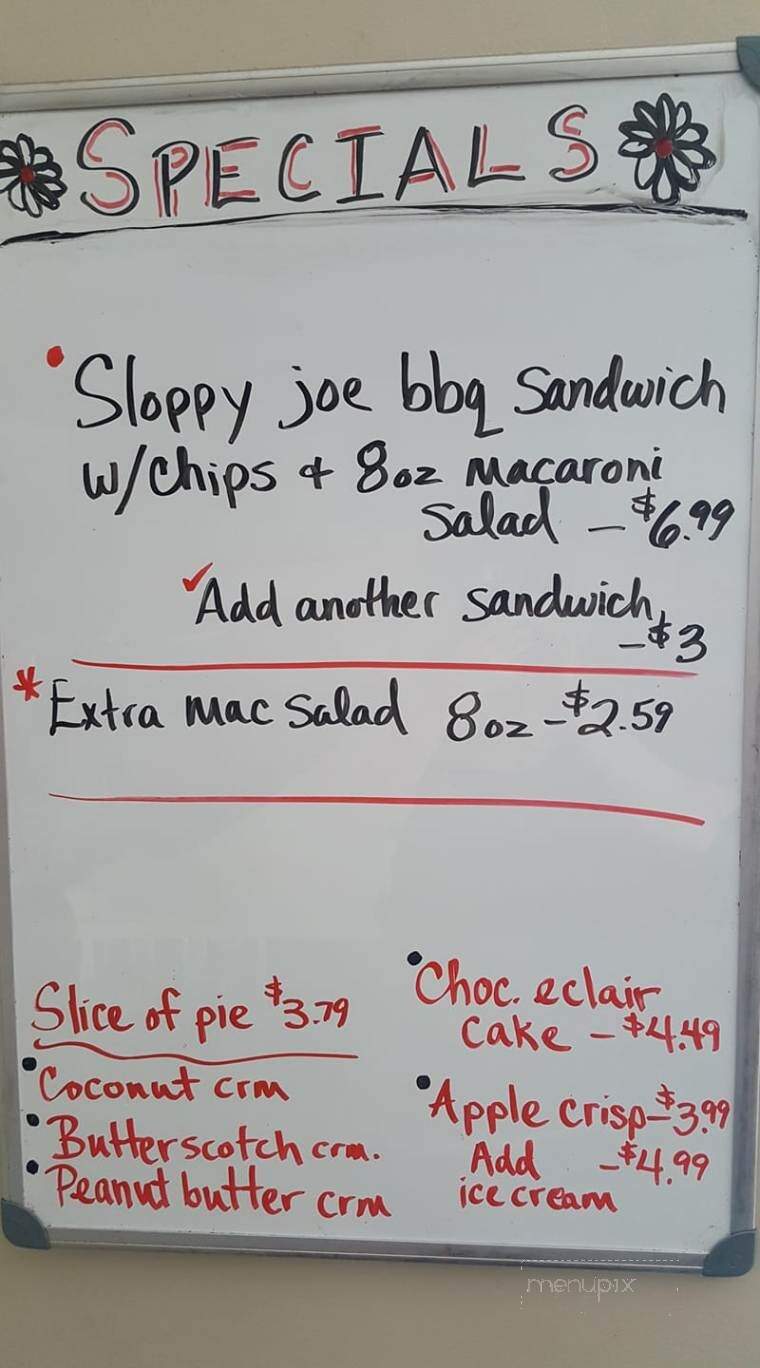 SPECIALS
Sloppy joe bbq Sandwich
w/chips & 8oz macaroni
Salad - $6.99
Add another sandwich
- $3
* Extra mac Salad 8oz - $2.59
Slice of pie $3.79
Coconut crm
Butterscotch crm.
Peanut butter crm
Choc. eclair
cake - $4.49
Apple crisp - $3.99
Add - $4.99
ice cream
menupix